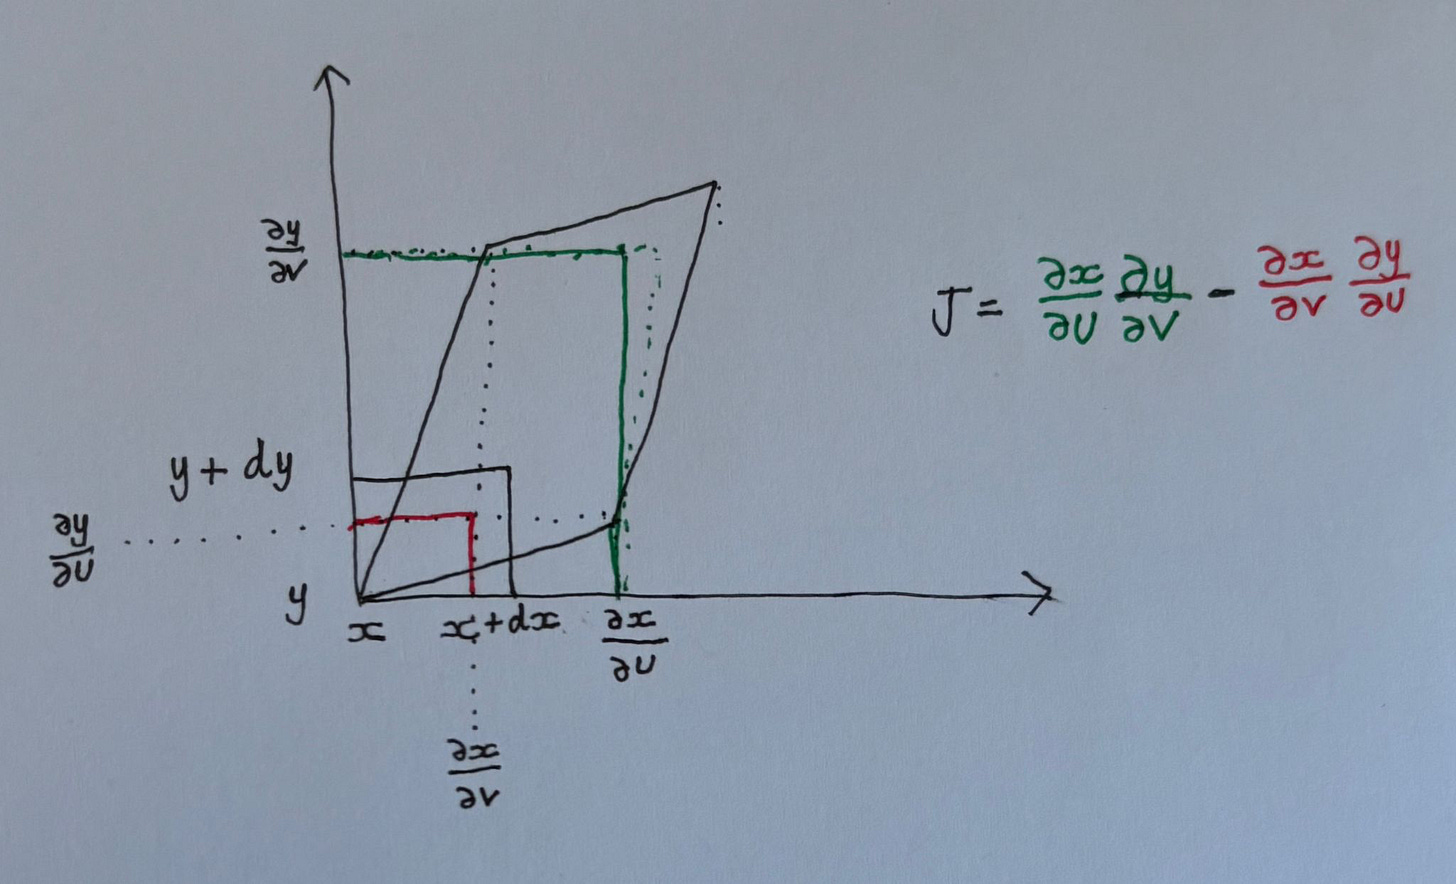 ∂y/∂v
J = ∂x/∂u ∂y/∂v - ∂x/∂v ∂y/∂u
y + dy
∂y/∂u
y
x
x + dx
∂x/∂u
∂x/∂v